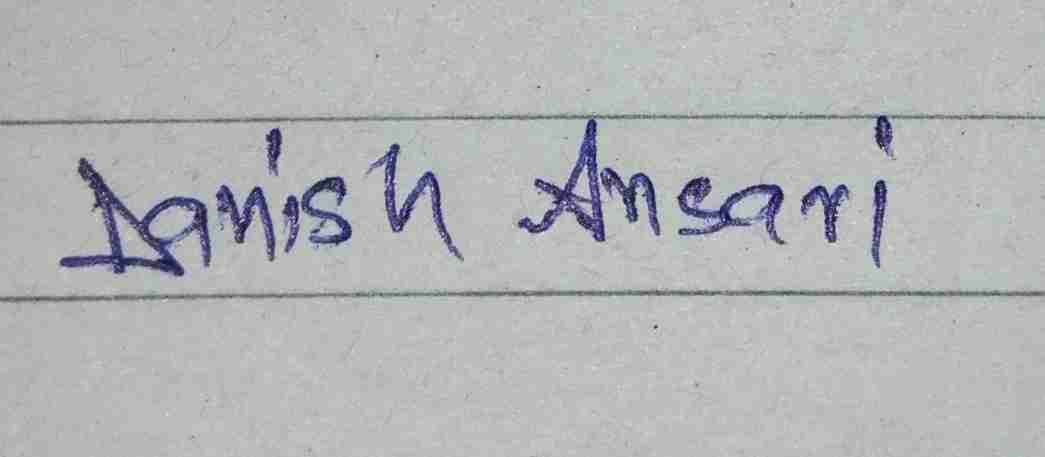 Danish Ansari